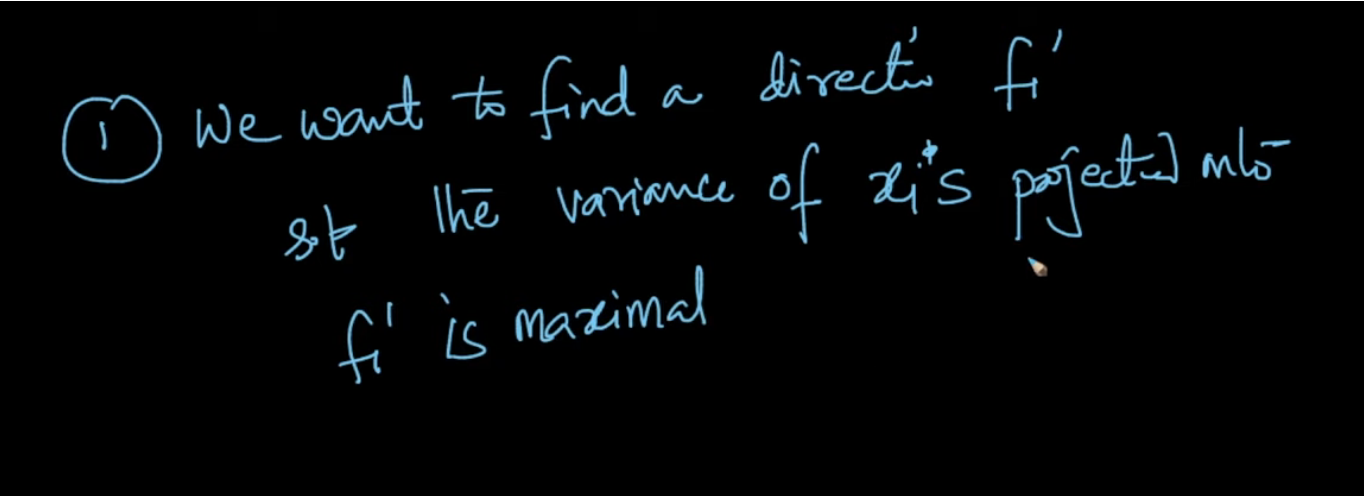 ① We want to find a directn f₁'
s.t the variance of xᵢ's projected onto
f₁' is maximal